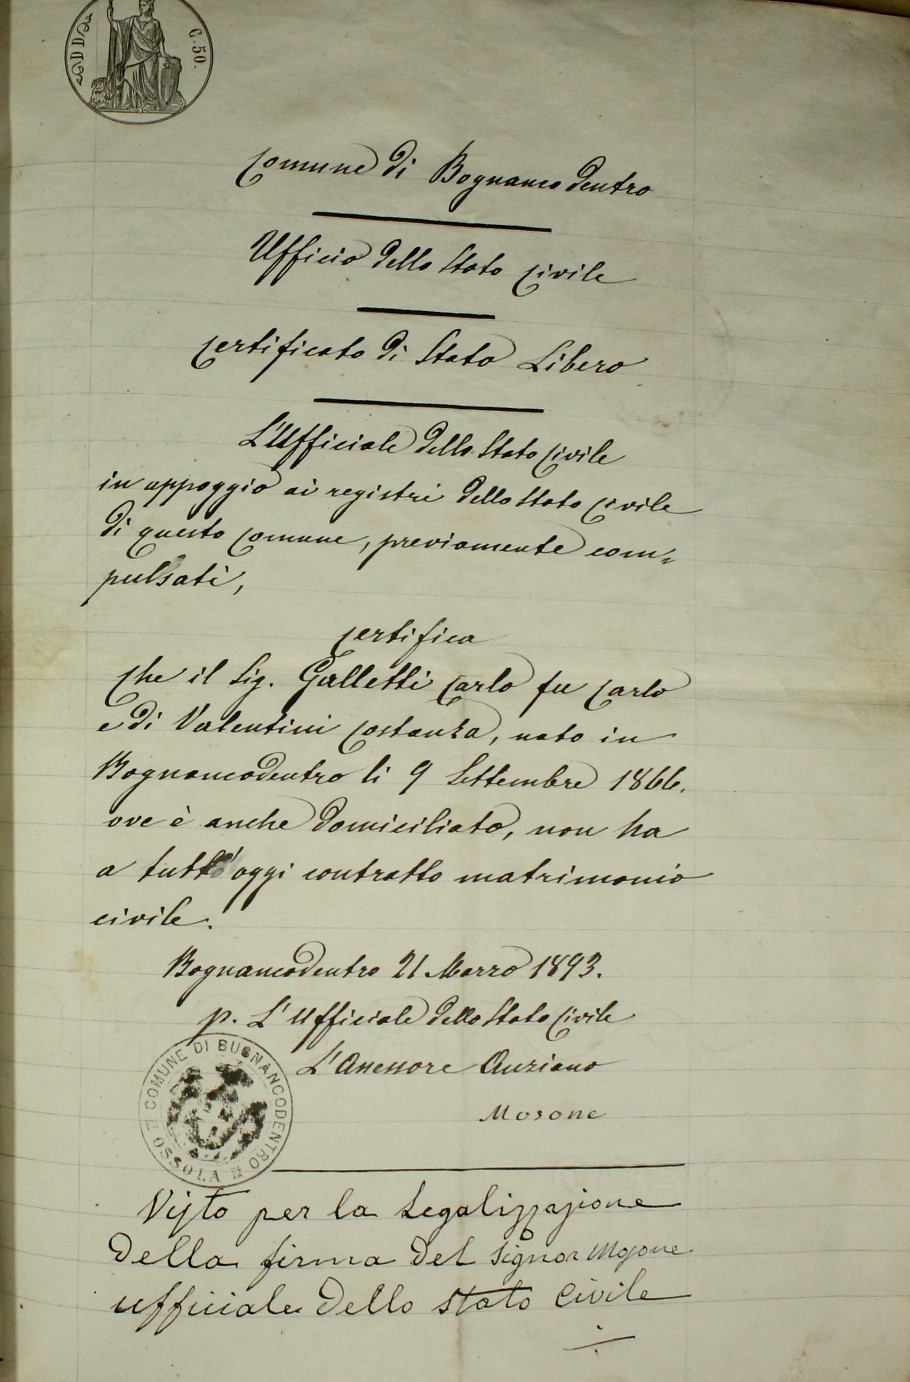 C. 50.
Comune di Bognanco dentro
Ufficio dello Stato Civile
Certificato di Stato Libero
L'Ufficiale dello Stato Civile
in appoggio ai registri dello Stato Civile
di questo Comune, previamente com=
pulsati,
Certifica
Che il Sig. Galletti Carlo fu Carlo
e di Valentini Costanza, nato in
Bognancodentro li 9 Settembre 1866.
ove è anche domiciliato, non ha
a tutt'oggi contratto matrimonio
civile.
Bognancodentro 21 Marzo 1893.
p. L'Ufficiale dello Stato Civile
L'Assessore Anziano
COMUNE DI BUGNANCODENTRO
OSSOLA
Visto per la Legalizzazione
della firma del Signor
ufficiale dello Stato Civile